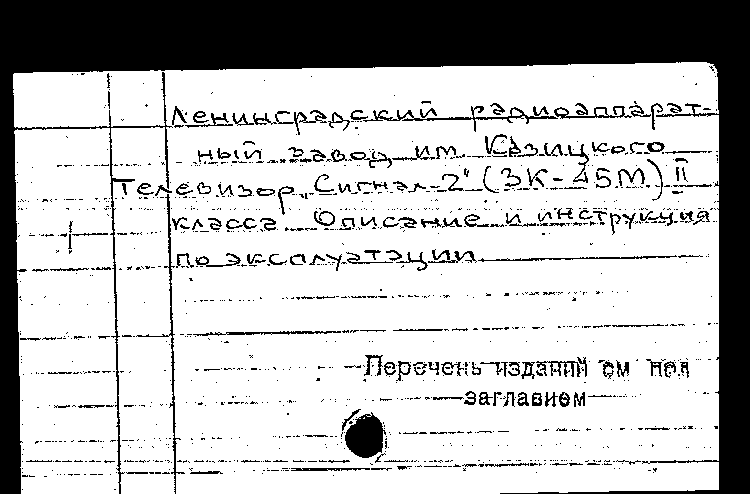 Ленинградский радиоаппарат-
ный завод им. Казицкого
Телевизор „Сигнал-2" (ЗК-45М) II
класса. Описание и инструкция
по эксплуатации.
Перечень изданий см под
заглавием